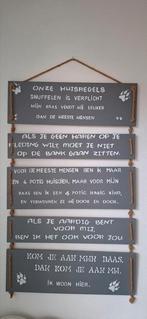 ONZE HUISREGELS
SNUFFELEN IS VERPLICHT
MIJN BAAS VINDT MIJ LEUKER
DAN DE MEESTE MENSEN
ALS JE GEEN HAREN OP JE
KLEDING WILT MOET JE NIET
OP DE BANK GAAN ZITTEN.
VOOR DE MEESTE MENSEN BEN IK MAAR
EEN 4 POTIG HUISDIER, MAAR VOOR MIJN
BAAS BEN IK EEN 4 POTIG HARIG KIND,
EN VERWENNEN ZE MIJ DOOR EN DOOR.
ALS JE AARDIG BENT
VOOR MIJ,
BEN IK HET OOK VOOR JOU
KOM JE AAN MIJN BAAS,
DAN KOM JE AAN MIJ.
IK WOON HIER.